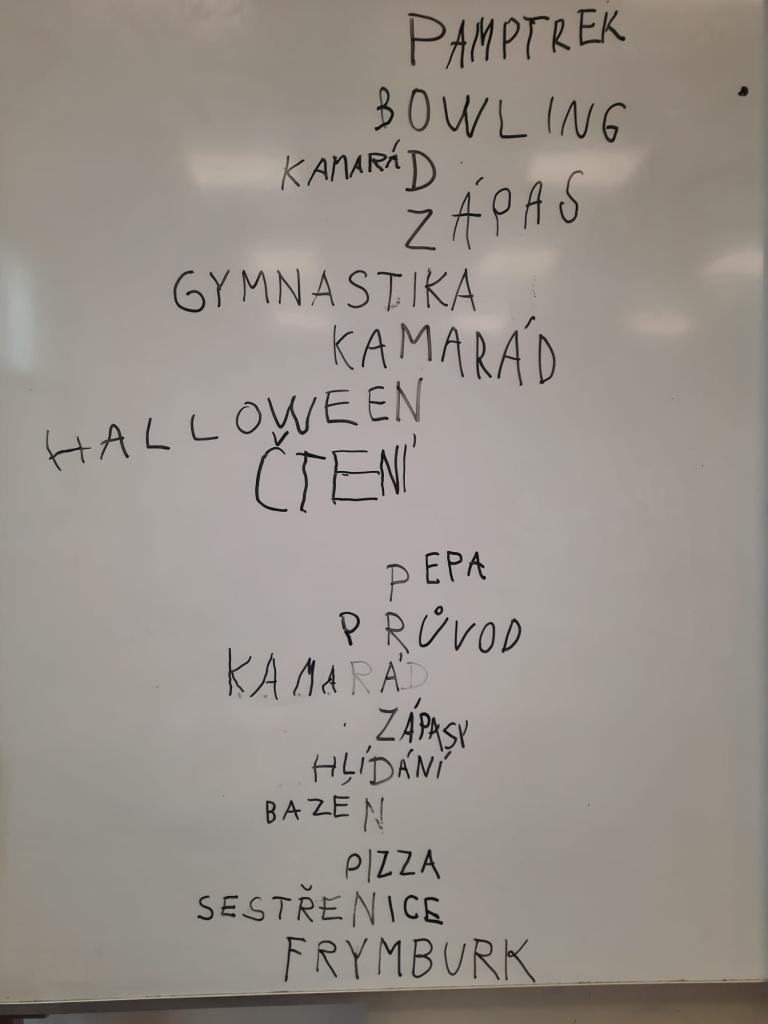 PAMPTREK
BOWLING
KAMARÁD
ZÁPAS
GYMNASTIKA
KAMARÁD
HALLOWEEN
ČTENÍ
PEPA
PRŮVOD
KAMARÁD
ZÁPASY
HLÍDÁNÍ
BAZEN
PIZZA
SESTŘENICE
FRYMBURK